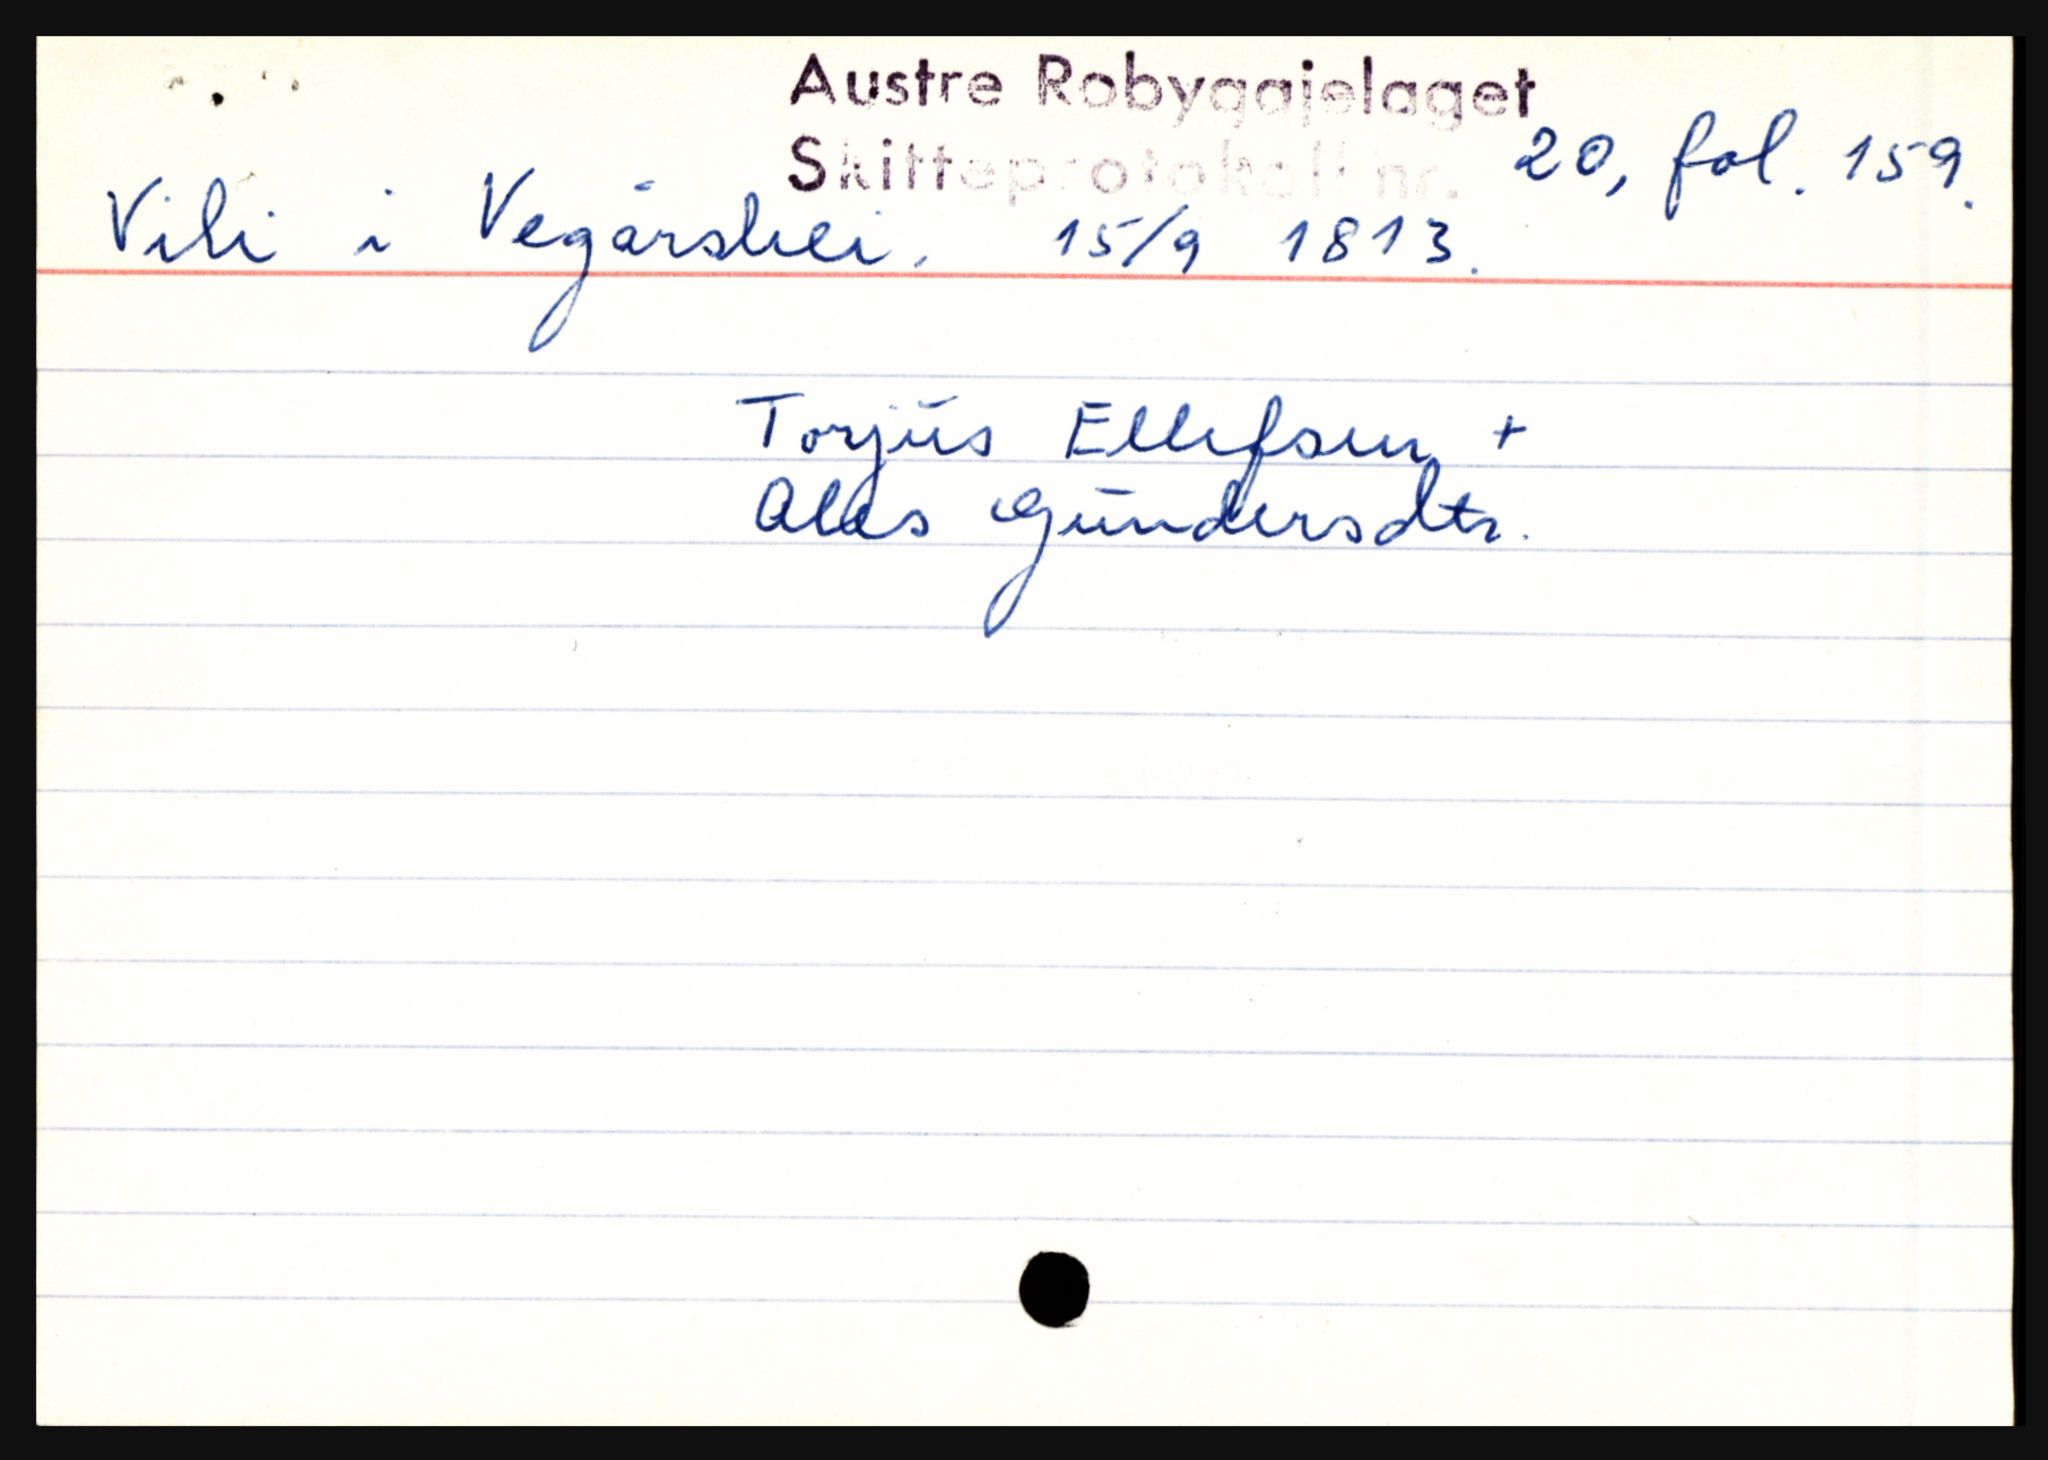 Austre Robygajelaget
Skifteprotokoll nr. 20, fol. 159.
Vihi i Vegårshei. 15/9 1813.
Torjus Ellefsen +
Alas Gundersdtr.